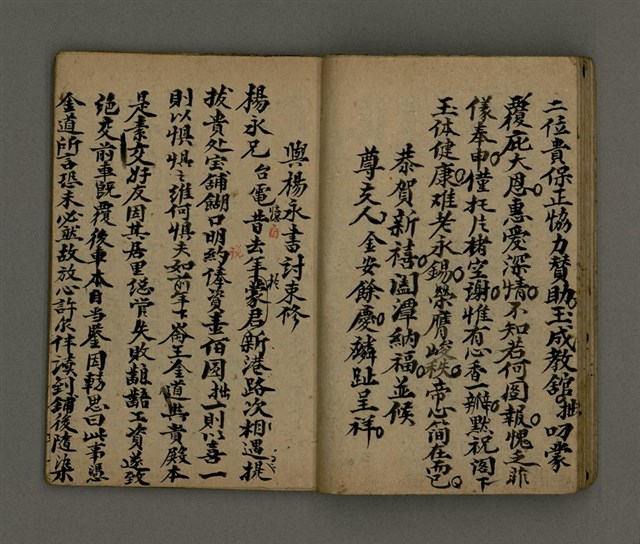 二位貴保正恊力贊助玉成教舘拙叨蒙
覆庇大恩惠愛深情不知若何圖報愧乏菲
儀奉申僅托片楮空謝惟有心香一瓣默祝阁下
玉体健康难老永錫榮膺峻秩帝心简在而已
恭賀新禧阖潭納福並候
尊丈人金安餘慶麟趾呈祥
與楊永書討束修
楊永兄台電憶自昔去年於蒙君新港路次相遇提
拔貴処宝舖餬口明約俸資壹佰圆拙一則以喜一
則以惧惧之維何惧夫如前年下崙王金道與貴殿本
是素交好友因其居里總賞失敗齟齬工資遂致
绝交前車既覆後車本自当鑒因轉思曰此事憑
金道所言恐未必然故放心許久伴读到舖後随染